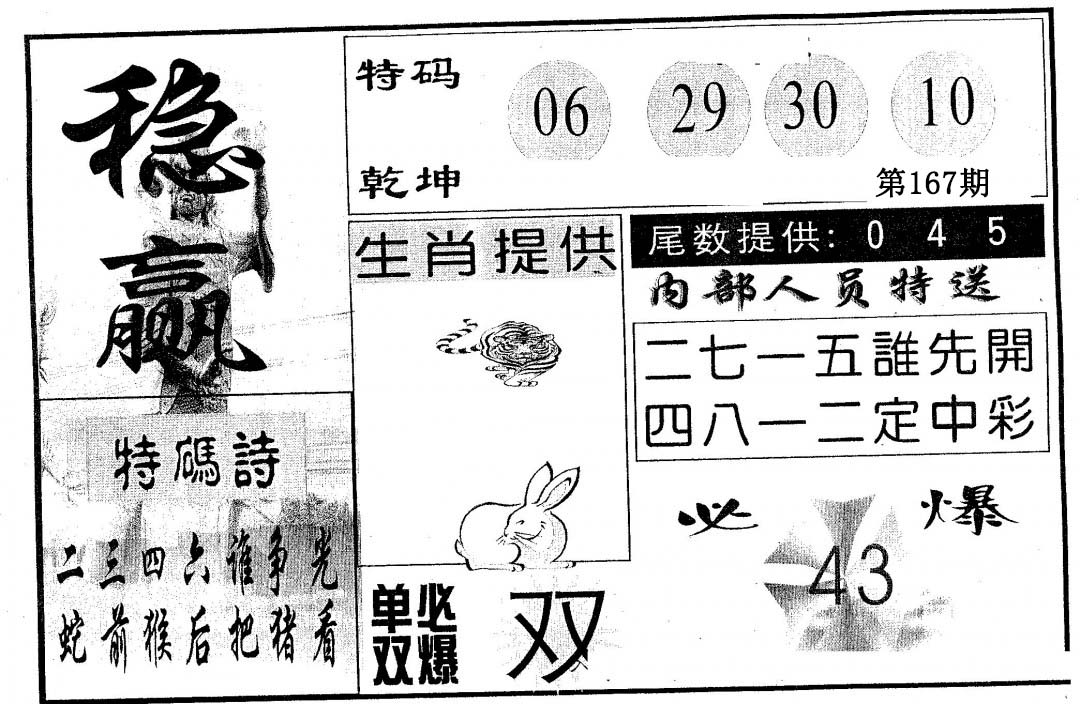 稳赢
特码
06 29 30 10
乾坤
第167期
生肖提供
尾数提供: 0 4 5
内部人员特送
二七一五誰先開
四八一二定中彩
特碼詩
二三四六谁争光
蛇前猴后把猪看
必爆
43
单双必爆
双